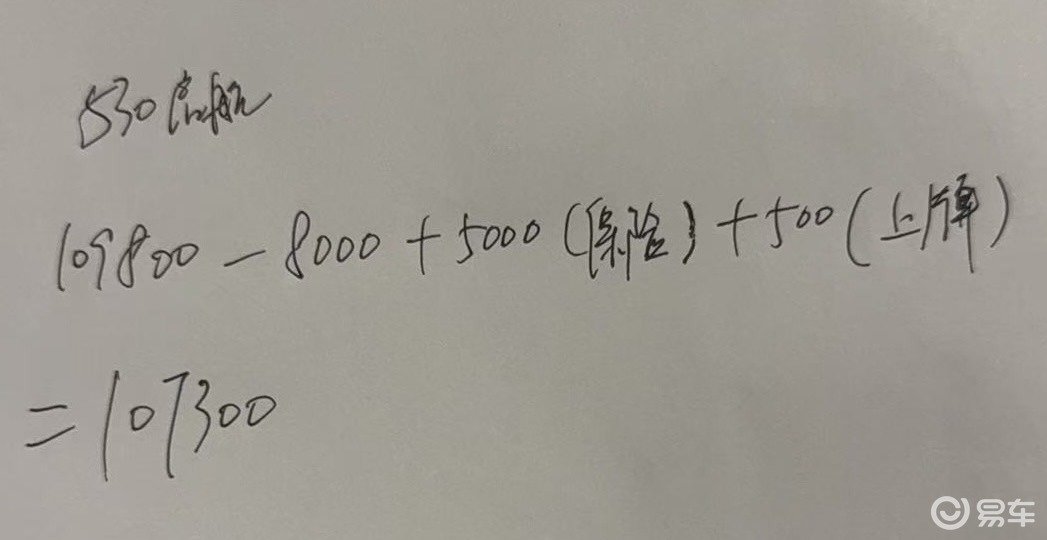 530启航
109800-8000+5000(保险)+500(上牌)
=107300
易车